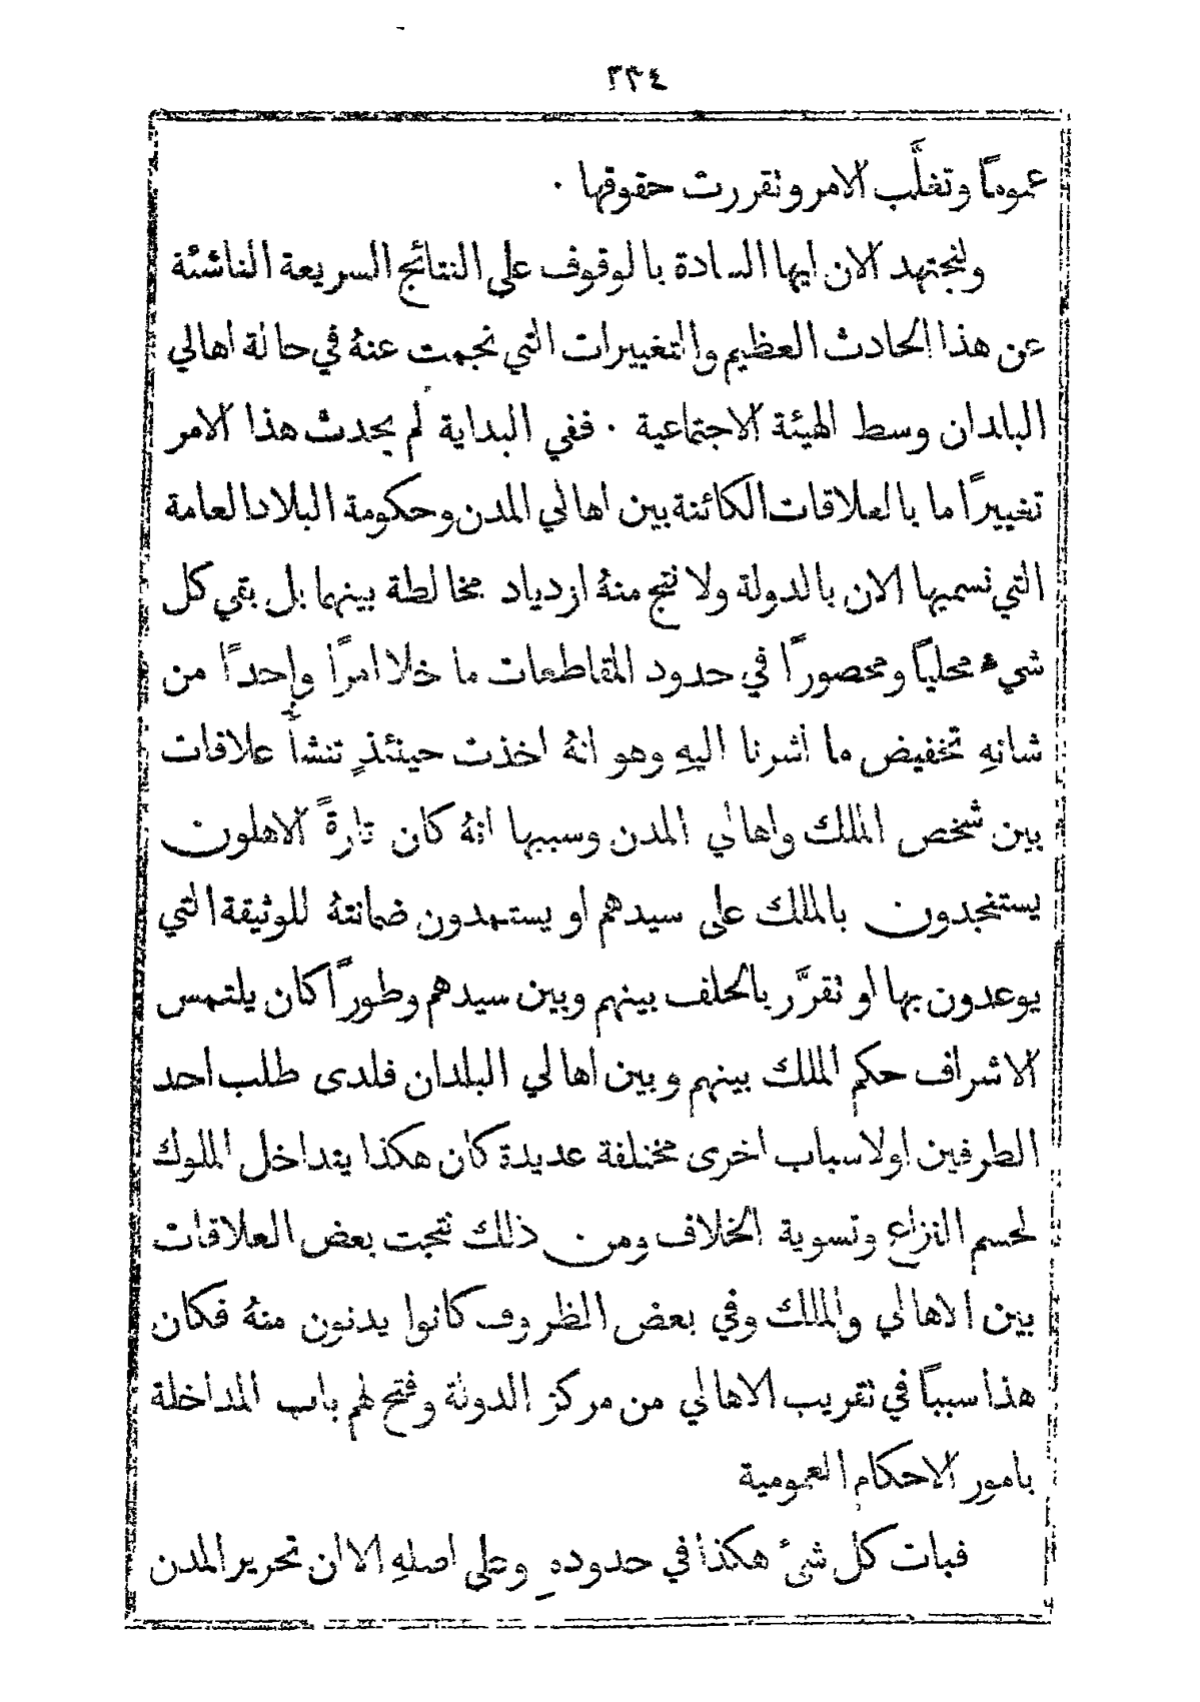 ٣٣٤
عموماً وتغلَّب الامر وتقررت حقوقها ٠
ولنجتهد الان ايها السادة بالوقوف على النتائج السريعة الناشئة
عن هذا الحادث العظيم والتغييرات التي نجمت عنهُ في حالة اهالي
البلدان وسط الهيئة الاجتماعية ٠ ففي البداية لم يحدث هذا الامر
تغييراً ما بالعلاقات الكائنة بين اهالي المدن وحكومة البلاد العامة
التي نسميها الان بالدولة ولا نتج منهُ ازدياد مخالطة بينهما بل بقي كل
شيء محلياً ومحصوراً في حدود المقاطعات ما خلا امراً واحداً من
شانهِ تخفيض ما اشرنا اليهِ وهو انهُ اخذت حينئذٍ تنشأ علاقات
بين شخص الملك واهالي المدن وسببها انهُ كان تارةً الاهلون
يستنجدون بالملك على سيدهم او يستمدون ضمانتهُ للوثيقة التي
يوعدون بها او تقرَّر بالحلف بينهم وبين سيدهم وطوراً كان يلتمس
الاشراف حكم الملك بينهم وبين اهالي البلدان فلدى طلب احد
الطرفين او لاسباب اخرى مختلفة عديدة كان هكذا يتداخل الملوك
لحسم النزاع وتسوية الخلاف ومن ذلك نتجت بعض العلاقات
بين الاهالي والملك وفي بعض الظروف كانوا يدنون منهُ فكان
هذا سبباً في تقريب الاهالي من مركز الدولة وفتح لهم باب المداخلة
بامور الاحكام العمومية
فبات كل شئ هكذا في حدودهِ وعلى اصلهِ الا ان تحرير المدن